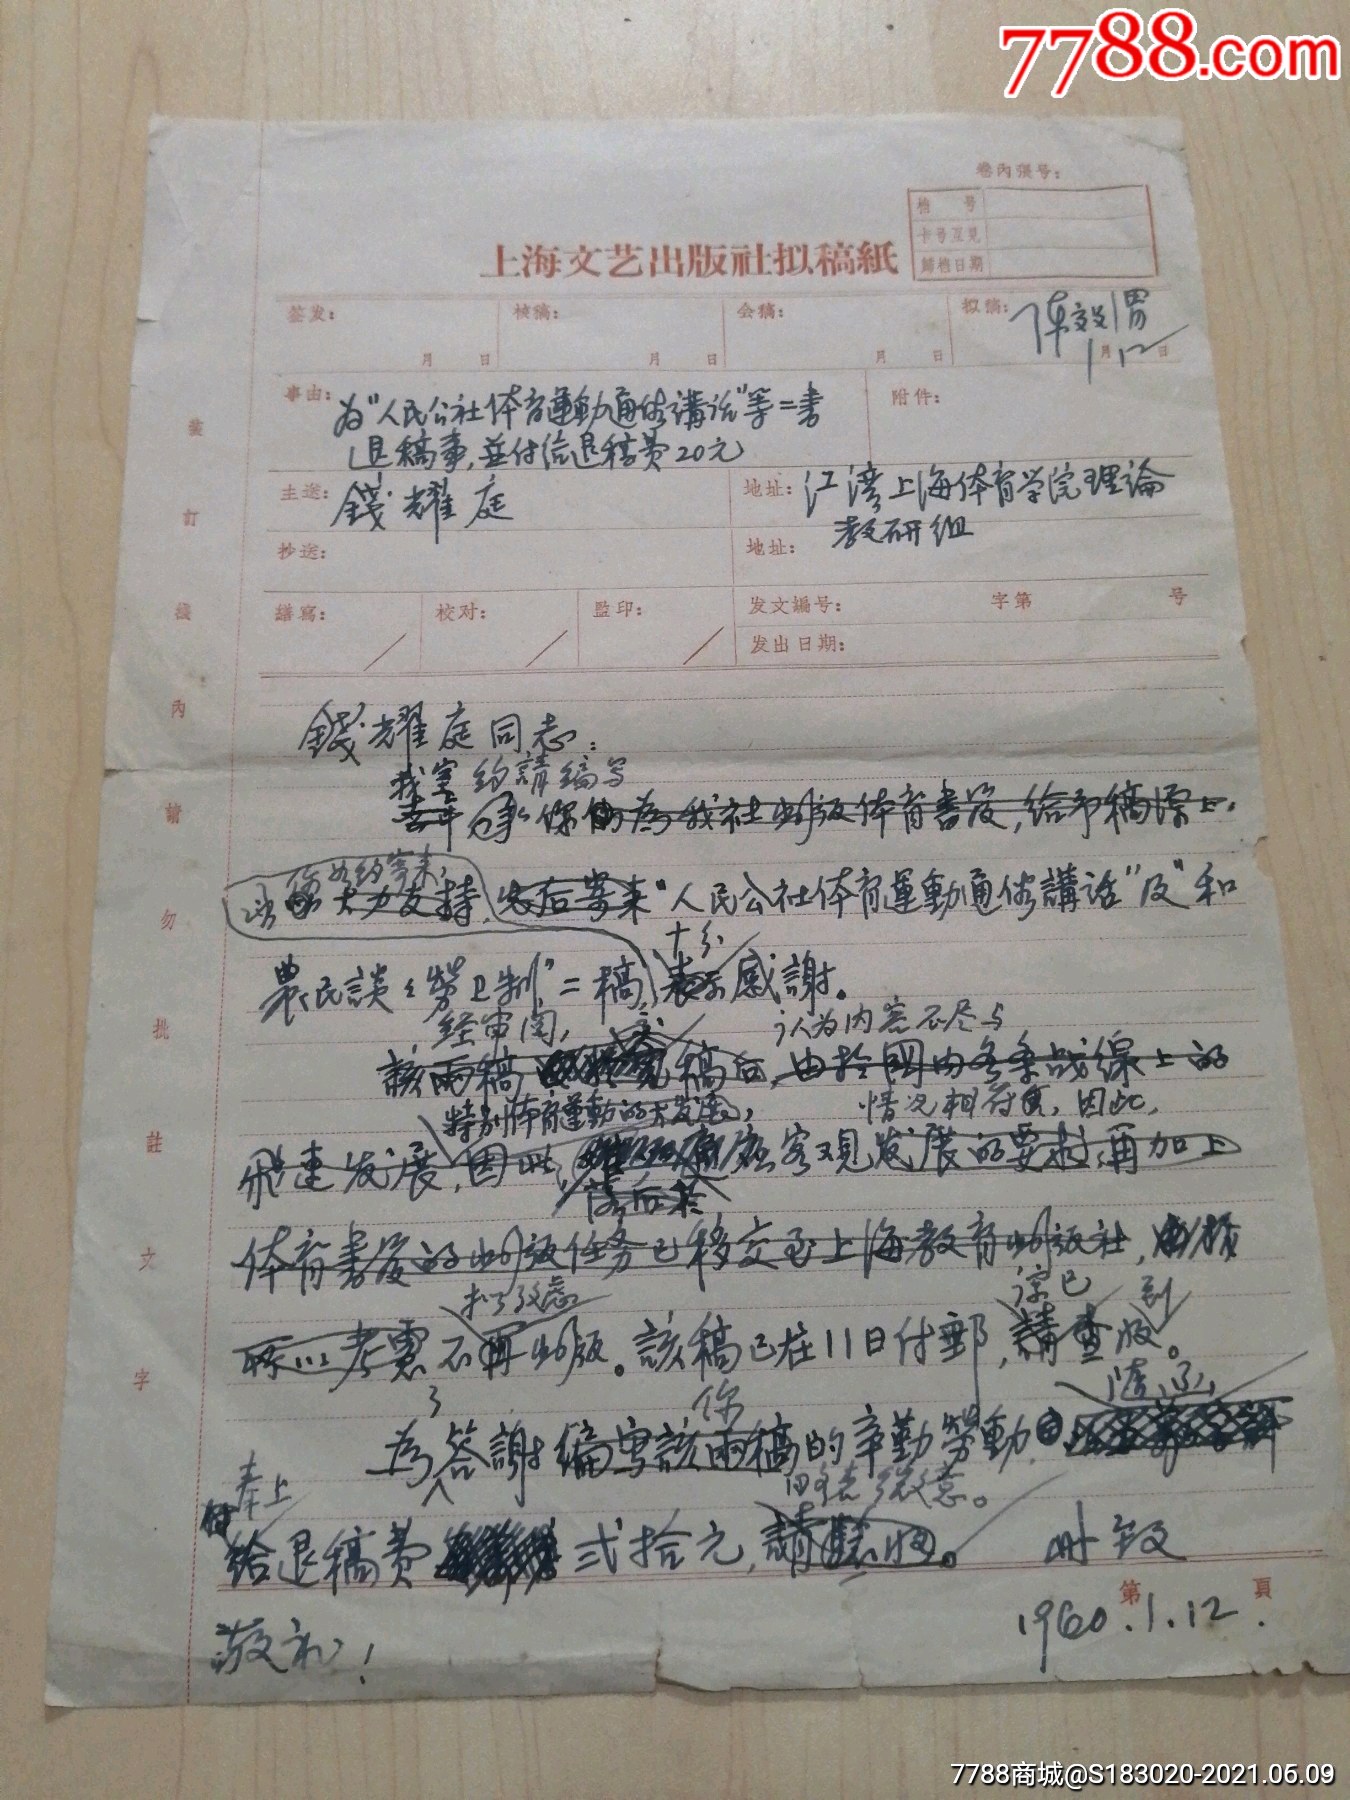 7788.com
卷內張号：
档 号
卡号互見
歸档日期
上海文艺出版社拟稿紙
签发： 核稿： 会稿： 拟稿：
月 日 月 日 月 日 1月12日
事由： 为“人民公社体育運動通俗講話”等二書
退稿事，並付給退稿费20元
附件：
主送： 錢耀庭
地址： 江湾上海体育学院理論
教研组
抄送： 地址：
繕寫： 校对： 監印： 发文編号： 字第 号
发出日期：
裝訂綫內請勿批註文字
錢耀庭同志：
我室约請编写
承你们为我社出版体育書籍，给予稿源上
你如约寄来，
大力支持，先后寄来“人民公社体育運動通俗講話”及“和
十分
農民談談勞卫制”二稿，表示感謝。
经审阅， 认为内容不尽与
該兩稿 稿后，由於國内各条战線上的
特别体育運動的大发展， 情况相符合，因此，
飛速发展，因此， 客观发展的要求，再加上
落后於
体育書籍的出版任务已移交至上海教育出版社，
拟考慮 諒已 到
所以考慮不再出版。該稿已在11日付郵，請查收。
了 你
為答謝编寫該兩稿的辛勤勞動，
奉上 微意。
给退稿费 弍拾元，請 收。 此致
敬礼！
第 頁
1960.1.12.
7788商城@S183020-2021.06.09